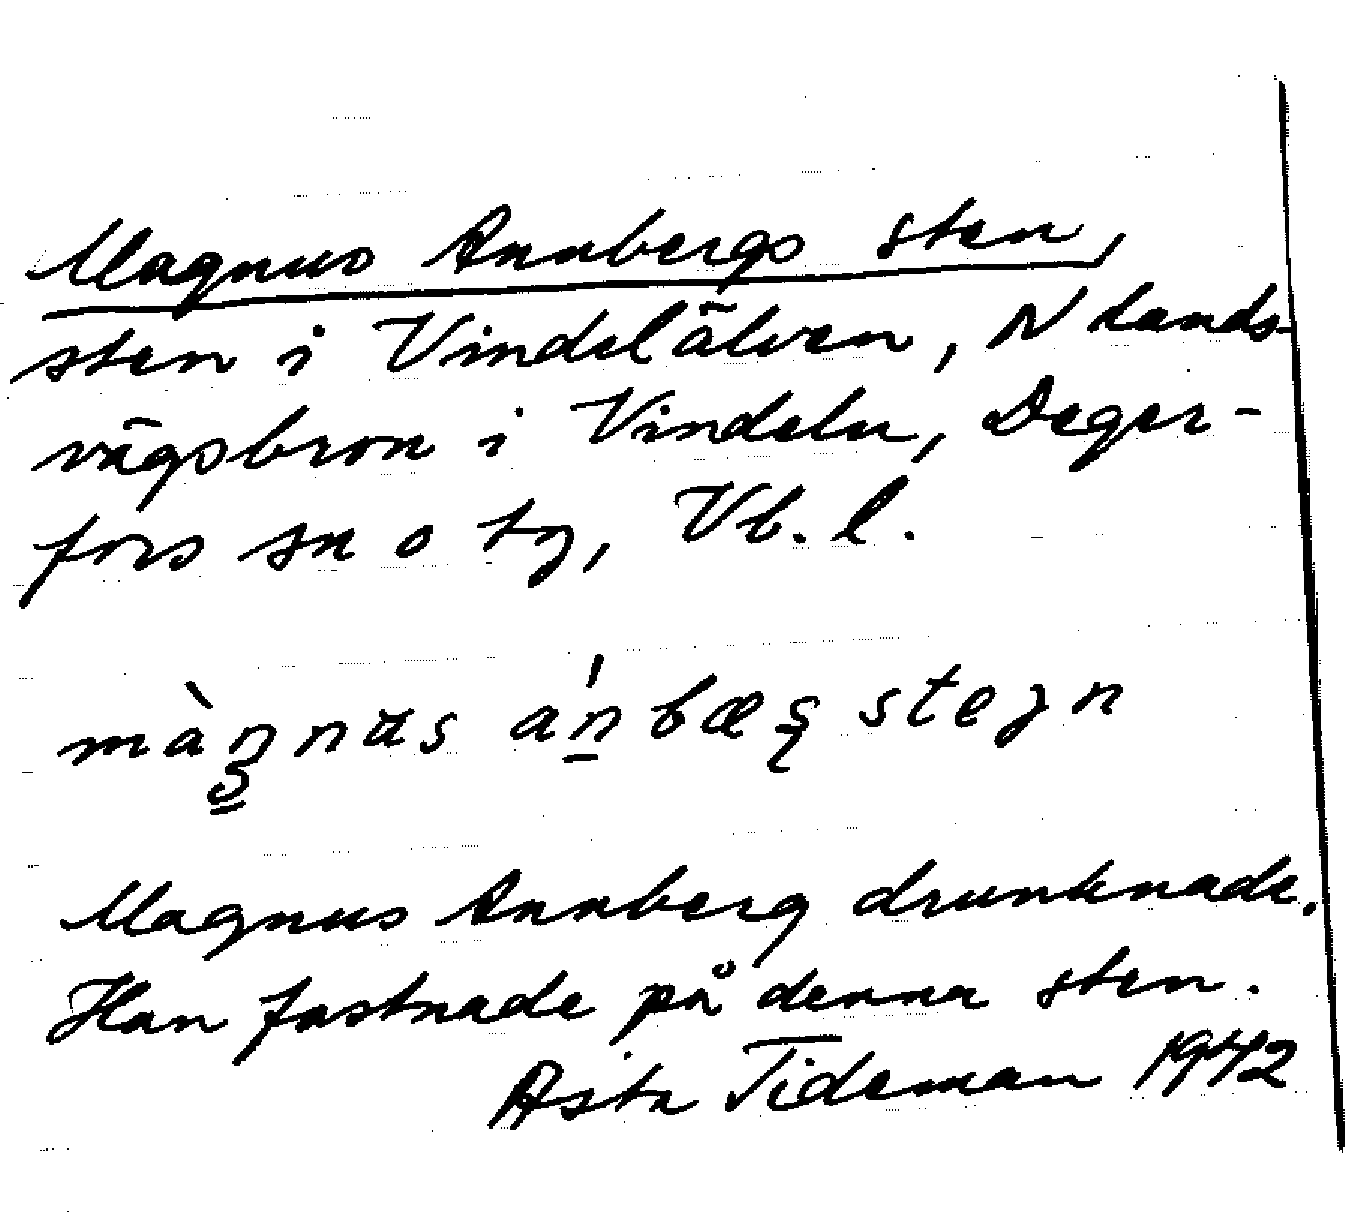 Magnus Annbergs sten,
sten i Vindelälven, N lands-
vägsbron i Vindeln, Deger-
fors sn o tg, Vb. l.
màŋnʉs ánbæș stejn
Magnus Annberg drunknade.
Han fastnade på denna sten.
Asta Tideman 1942